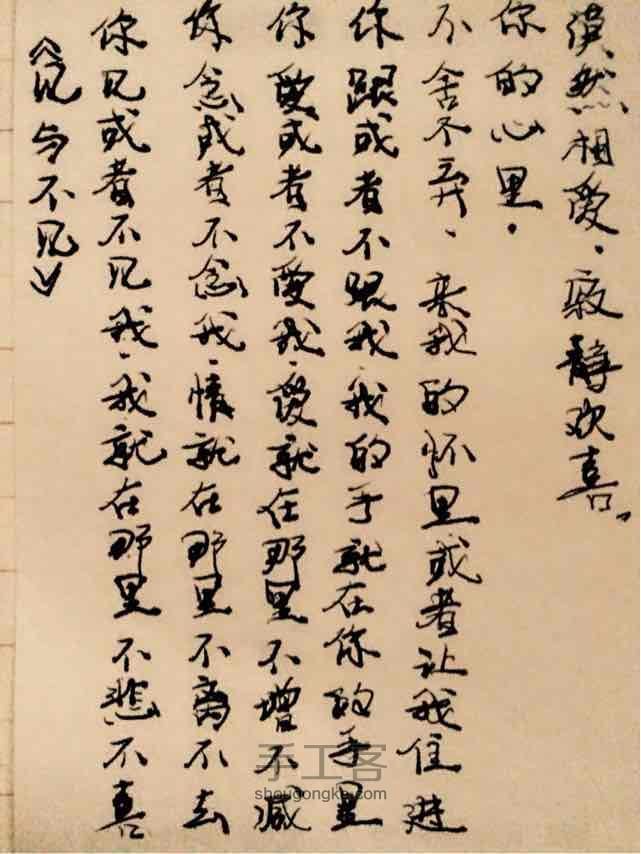 《见与不见》
你见或者不见我、我就在那里不悲不喜
你念或者不念我、情就在那里不离不去
你爱或者不爱我、爱就在那里不增不减
你跟或者不跟我、我的手就在你的手里
不舍不弃、来我的怀里或者让我住进
你的心里.
漠然相爱、寂静欢喜。
手工客
shougongke.com